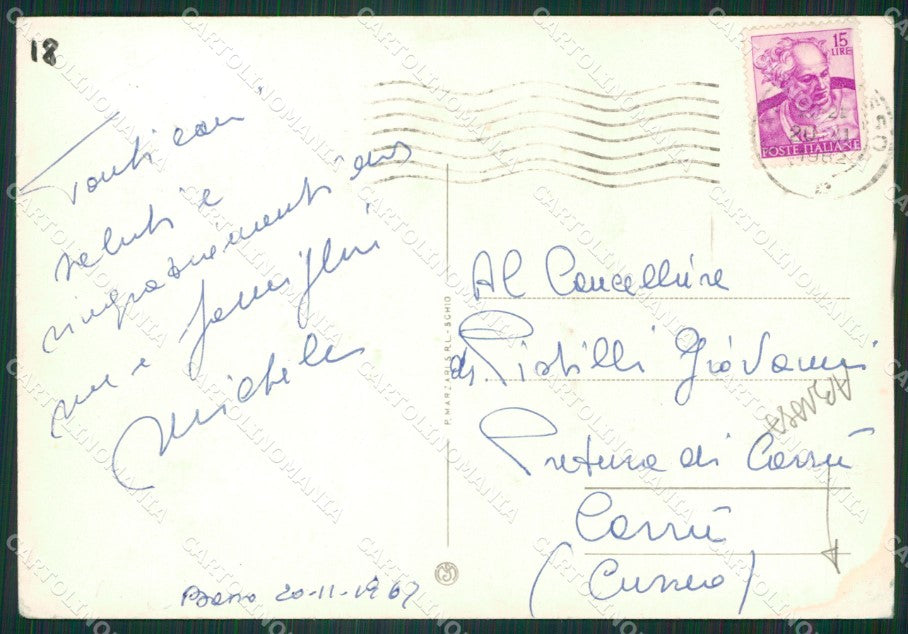 18
Tanti cari
saluti e
ringraziamenti
me e famiglia
Michele
20-11-1962
P. MARZARI S.R.L. - SCHIO
15
LIRE
POSTE ITALIANE
1962
Al Cancelliere
dr. Pistilli Giovanni
Pretura di Carrù
Carrù
(Cuneo)
CARTOLINOMANIA